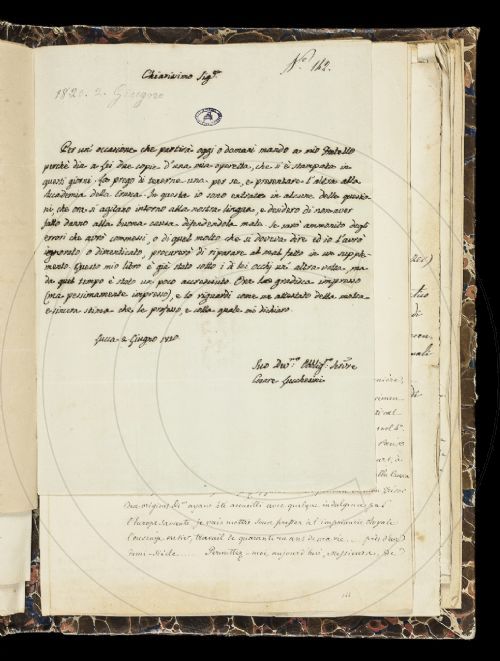 Chiarissimo Sigr.
No. 142.
1820. 2. Giugno
Per un' occasione che partirà oggi o domani mando a mio Fratello
perché dia a Lei due copie d'una mia operetta, che si è stampata in
questi giorni. La prego di tenerne una per se, e presentare l'altra alla
Accademia della Crusca. In questa io sono entrato in alcune delle questio-
ni, che ora si agitano intorno alla nostra lingua, e desidero di non aver
fatto danno alla buona causa difendendola male. Se sarò ammonito degli
errori che avrò commessi, o di quel molto che si doveva dire ed io l'avrò
ignorato o dimenticato, procurerò di riparare al mal fatto in un supple-
mento. Questo mio libro è già stato sotto i di lei occhi un' altra volta, ma
da quel tempo è stato un poco accresciuto. Ora lo gradisca impresso
(ma pessimamente impresso), e lo riguardi come un attestato della molta
e sincera stima che le professo, e colla quale mi dichiaro
Lucca 2 Giugno 1820
Suo Devmo. Obbligo. Servre
Cesare Lucchesini
l'Europe savante, je vais mettre sous presse à l'imprimerie Royale
l'ouvrage entier, travail de quarante un ans de ma vie
demi-siècle Permettez-moi, aujourd'hui, Messieurs, de